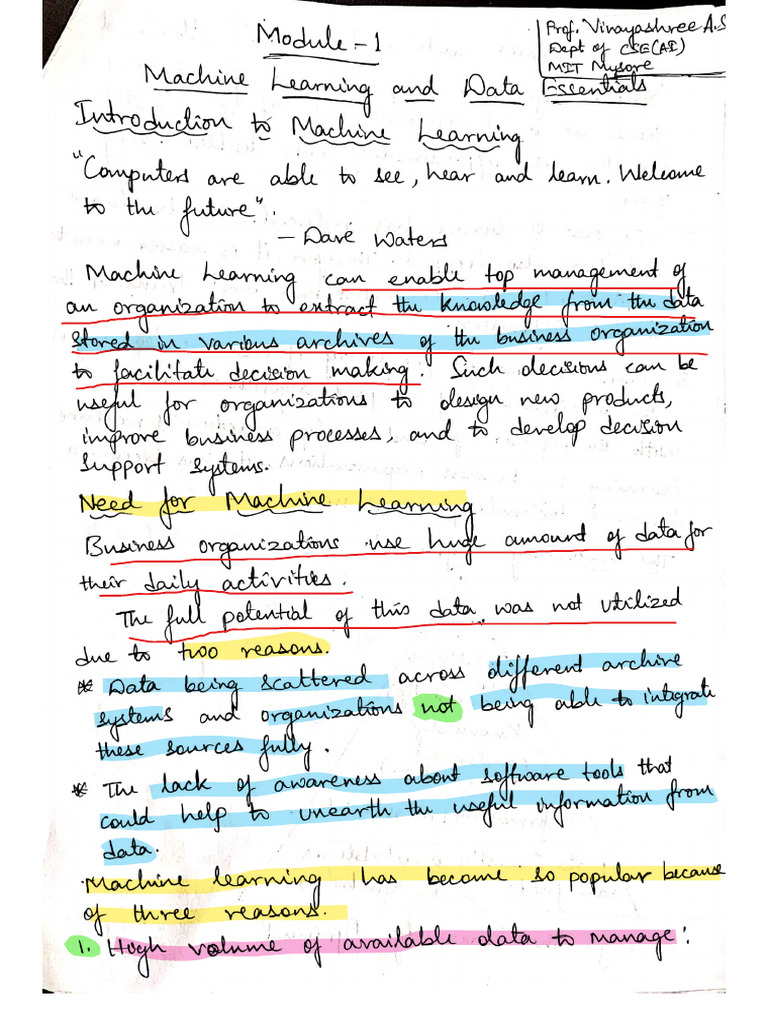 Module - 1
Prof. Vinayashree A.S
Dept of CSE(AI)
MIT Mysore
Machine Learning and Data Essentials
Introduction to Machine Learning
"Computers are able to see, hear and learn. Welcome
to the future".
- Dave Waters
Machine Learning can enable top management of
an organization to extract the knowledge from the data
stored in various archives of the business organization
to facilitate decision making. Such decisions can be
useful for organizations to design new products,
improve business processes, and to develop decision
support systems.
Need for Machine Learning
Business organizations use huge amount of data for
their daily activities.
The full potential of this data was not utilized
due to two reasons.
* Data being scattered across different archive
systems and organizations not being able to integrate
these sources fully.
* The lack of awareness about software tools that
could help to unearth the useful information from
data.
Machine learning has become so popular because
of three reasons.
1. High volume of available data to manage: